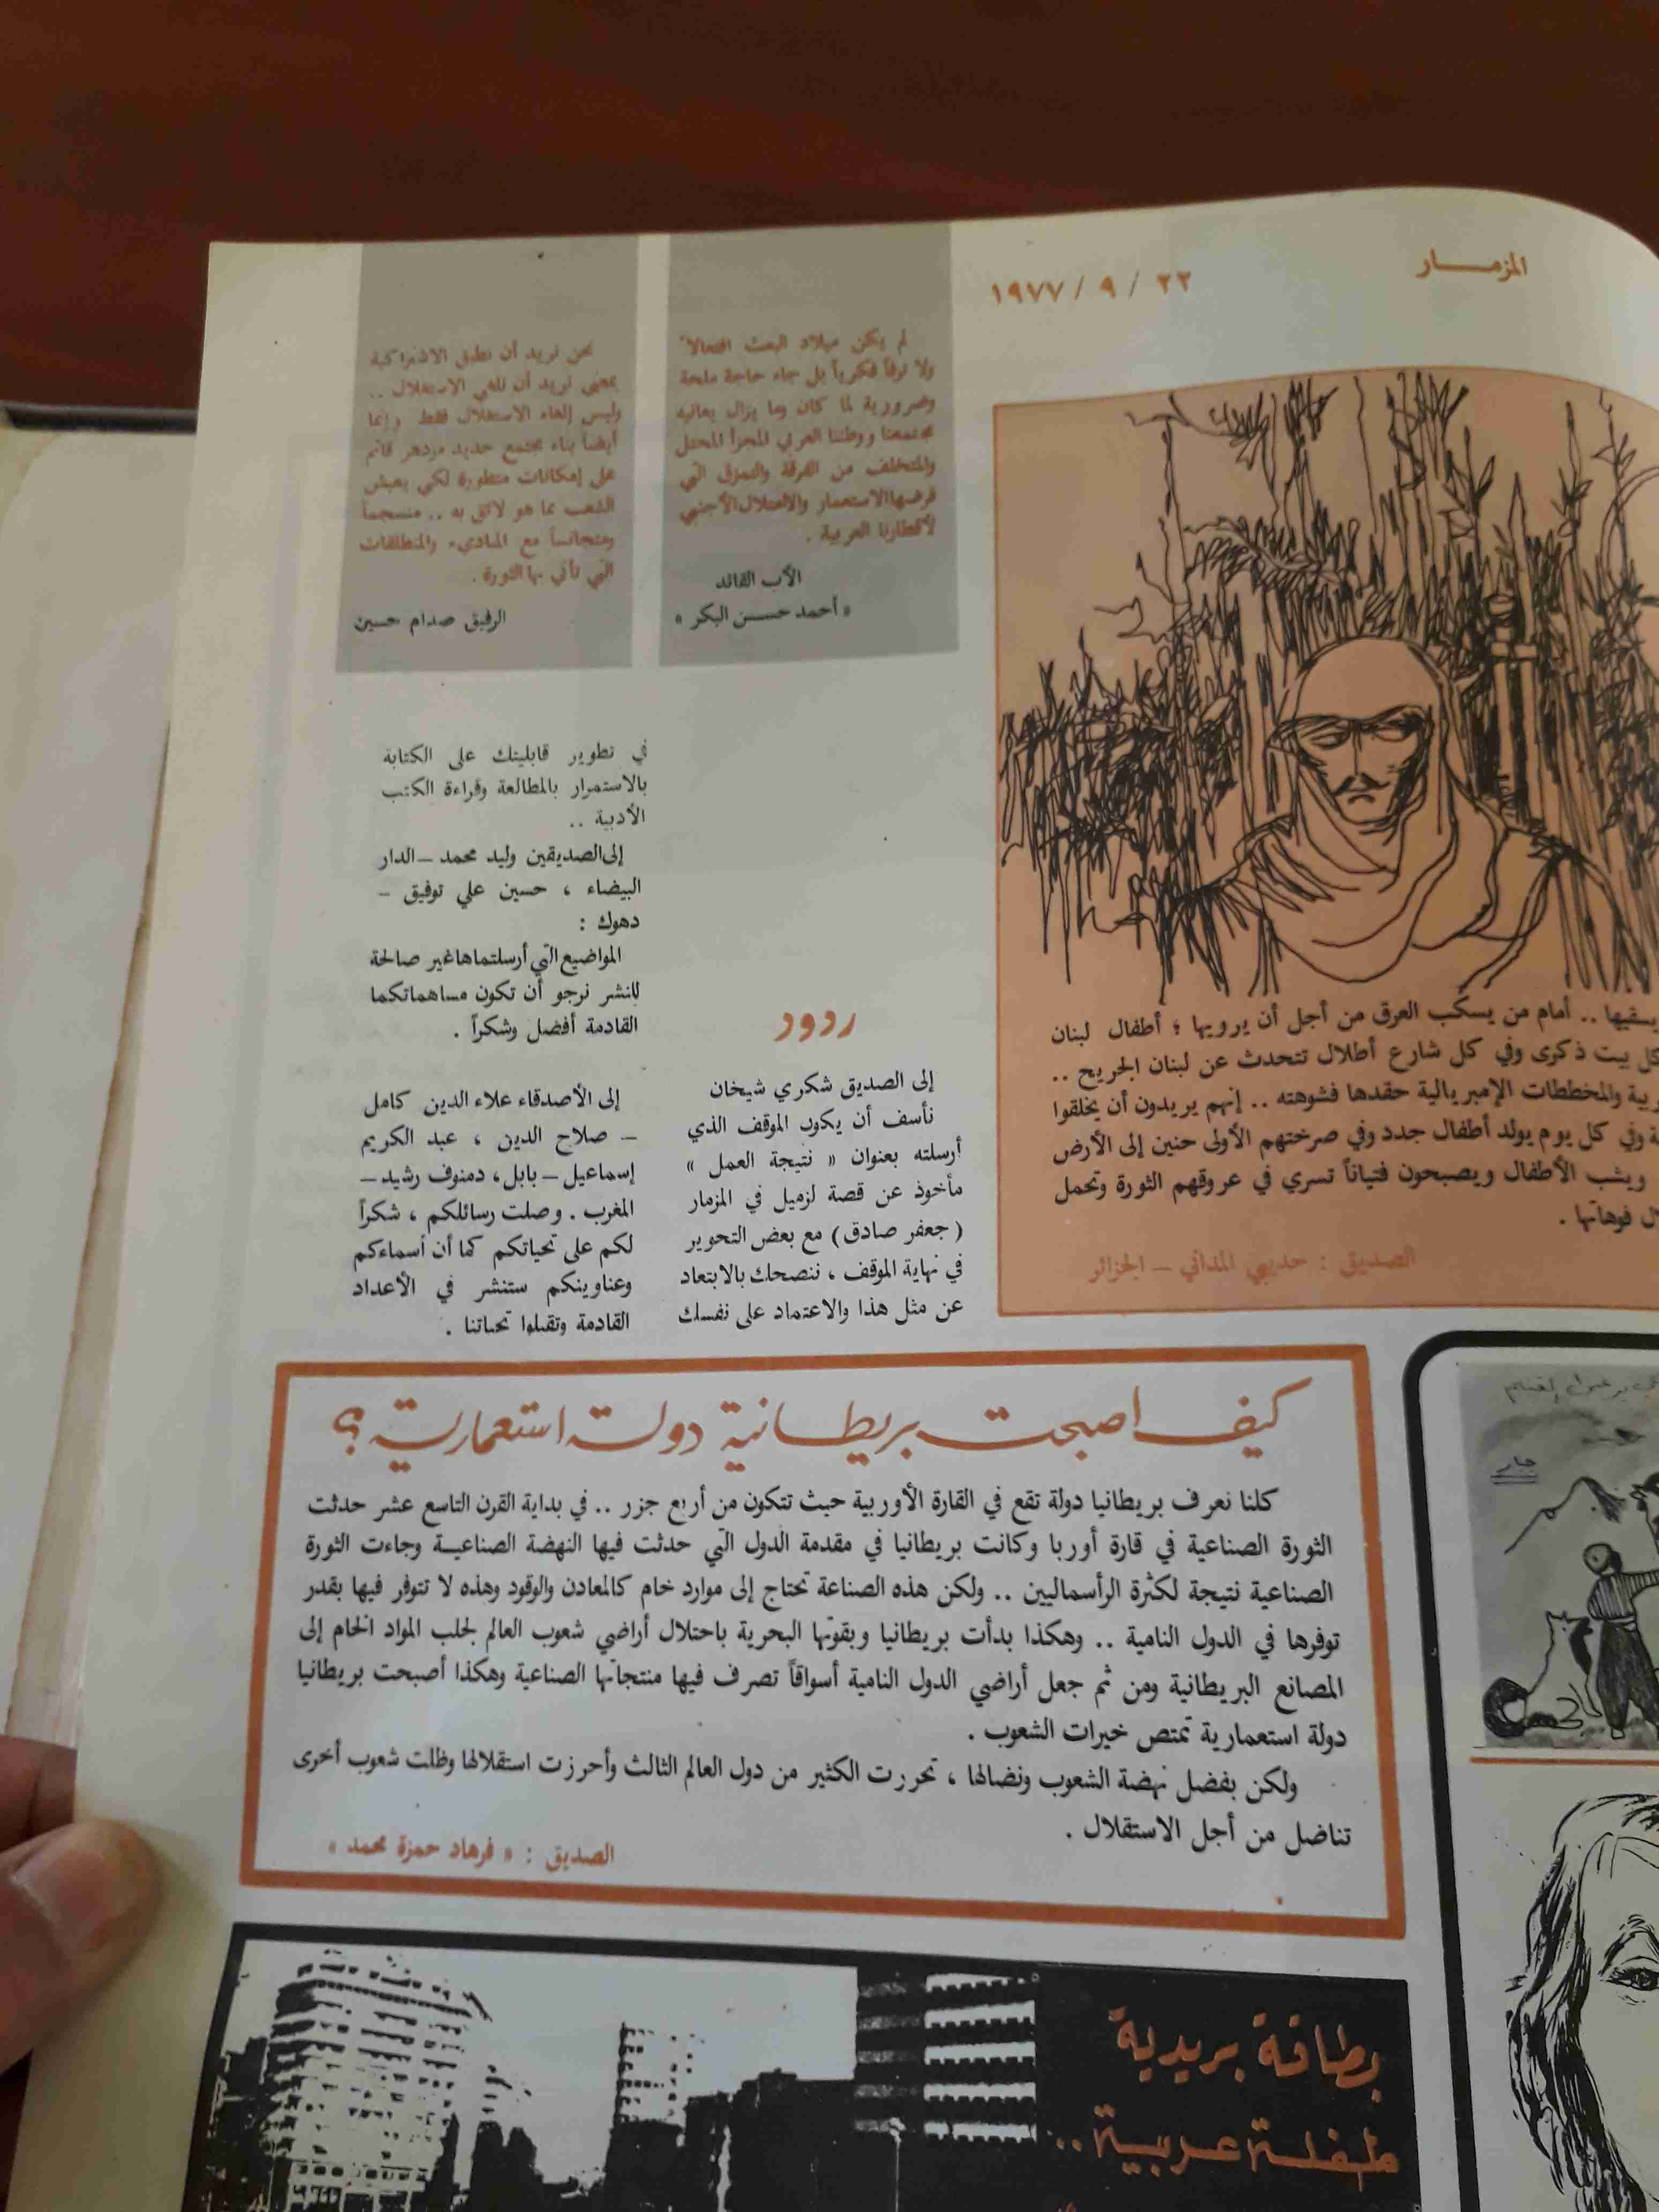 المزمـــار
٢٢ / ٩ / ١٩٧٧
لم يكن ميلاد البعث افتعالاً
ولا ترفاً فكرياً بل جاء حاجة ملحة
وضرورية لما كان وما يزال يعانيه
مجتمعنا ووطننا العربي المجزأ المحتل
والمتخلف من الفرقة والتمزق التي
فرضها الاستعمار والاحتلال الأجنبي
لأقطارنا العربية .
الأب القائد
« أحمد حســـن البكر »
نحن نريد أن نطبق الاشتراكية
بمعنى نريد أن نلغي الاستغلال ..
وليس إلغاء الاستغلال فقط وإنما
أيضاً بناء مجتمع جديد مزدهر قائم
على إمكانات متطورة لكي يعيش
الشعب بما هو لائق به .. منسجماً
ومتجانساً مع المبادىء والمنطلقات
التي تأتي بها الثورة .
الرفيق صدام حسين
يسقيها .. أمام من يسكب العرق من أجل أن يرويها ؛ أطفال لبنان
كل بيت ذكرى وفي كل شارع أطلال تتحدث عن لبنان الجريح ..
والمخططات الإمبريالية حقدها فشوهته .. إنهم يريدون أن يخلقوا
وفي كل يوم يولد أطفال جدد وفي صرختهم الأولى حنين إلى الأرض
ويشب الأطفال ويصبحون فتياناً تسري في عروقهم الثورة وتحمل
فوهاتها .
الصديق : حديبي المداني – الجزائر
ردود
إلى الصديق شكري شيخان
نأسف أن يكون الموقف الذي
أرسلته بعنوان « نتيجة العمل »
مأخوذ عن قصة لزميل في المزمار
( جعفر صادق ) مع بعض التحوير
في نهاية الموقف ، ننصحك بالابتعاد
عن مثل هذا والاعتماد على نفسك
في تطوير قابليتك على الكتابة
بالاستمرار بالمطالعة وقراءة الكتب
الأدبية ..
إلى الصديقين وليد محمد – الدار
البيضاء ، حسين علي توفيق –
دهوك :
المواضيع التي أرسلتماها غير صالحة
للنشر نرجو أن تكون مساهماتكما
القادمة أفضل وشكراً .
إلى الأصدقاء علاء الدين كامل
– صلاح الدين ، عبد الكريم
إسماعيل – بابل ، دمنوف رشيد –
المغرب . وصلت رسائلكم ، شكراً
لكم على تحياتكم كما أن أسماءكم
وعناوينكم ستنشر في الأعداد
القادمة وتقبلوا تحياتنا .
كيف اصبحت بريطانية دولة استعمارية ؟
كلنا نعرف بريطانيا دولة تقع في القارة الأوربية حيث تتكون من أربع جزر .. في بداية القرن التاسع عشر حدثت
الثورة الصناعية في قارة أوربا وكانت بريطانيا في مقدمة الدول التي حدثت فيها النهضة الصناعيــة وجاءت الثورة
الصناعية نتيجة لكثرة الرأسماليين .. ولكن هذه الصناعة تحتاج إلى موارد خام كالمعادن والوقود وهذه لا تتوفر فيها بقدر
توفرها في الدول النامية .. وهكذا بدأت بريطانيا وبقوتها البحرية باحتلال أراضي شعوب العالم لجلب المواد الخام إلى
المصانع البريطانية ومن ثم جعل أراضي الدول النامية أسواقاً تصرف فيها منتجاتها الصناعية وهكذا أصبحت بريطانيا
دولة استعمارية تمتص خيرات الشعوب .
ولكن بفضل نهضة الشعوب ونضالها ، تحررت الكثير من دول العالم الثالث وأحرزت استقلالها وظلت شعوب أخرى
تناضل من أجل الاستقلال .
الصديق : « فرهاد حمزة محمد »
بطاقة بريدية
طفلة عربية ..